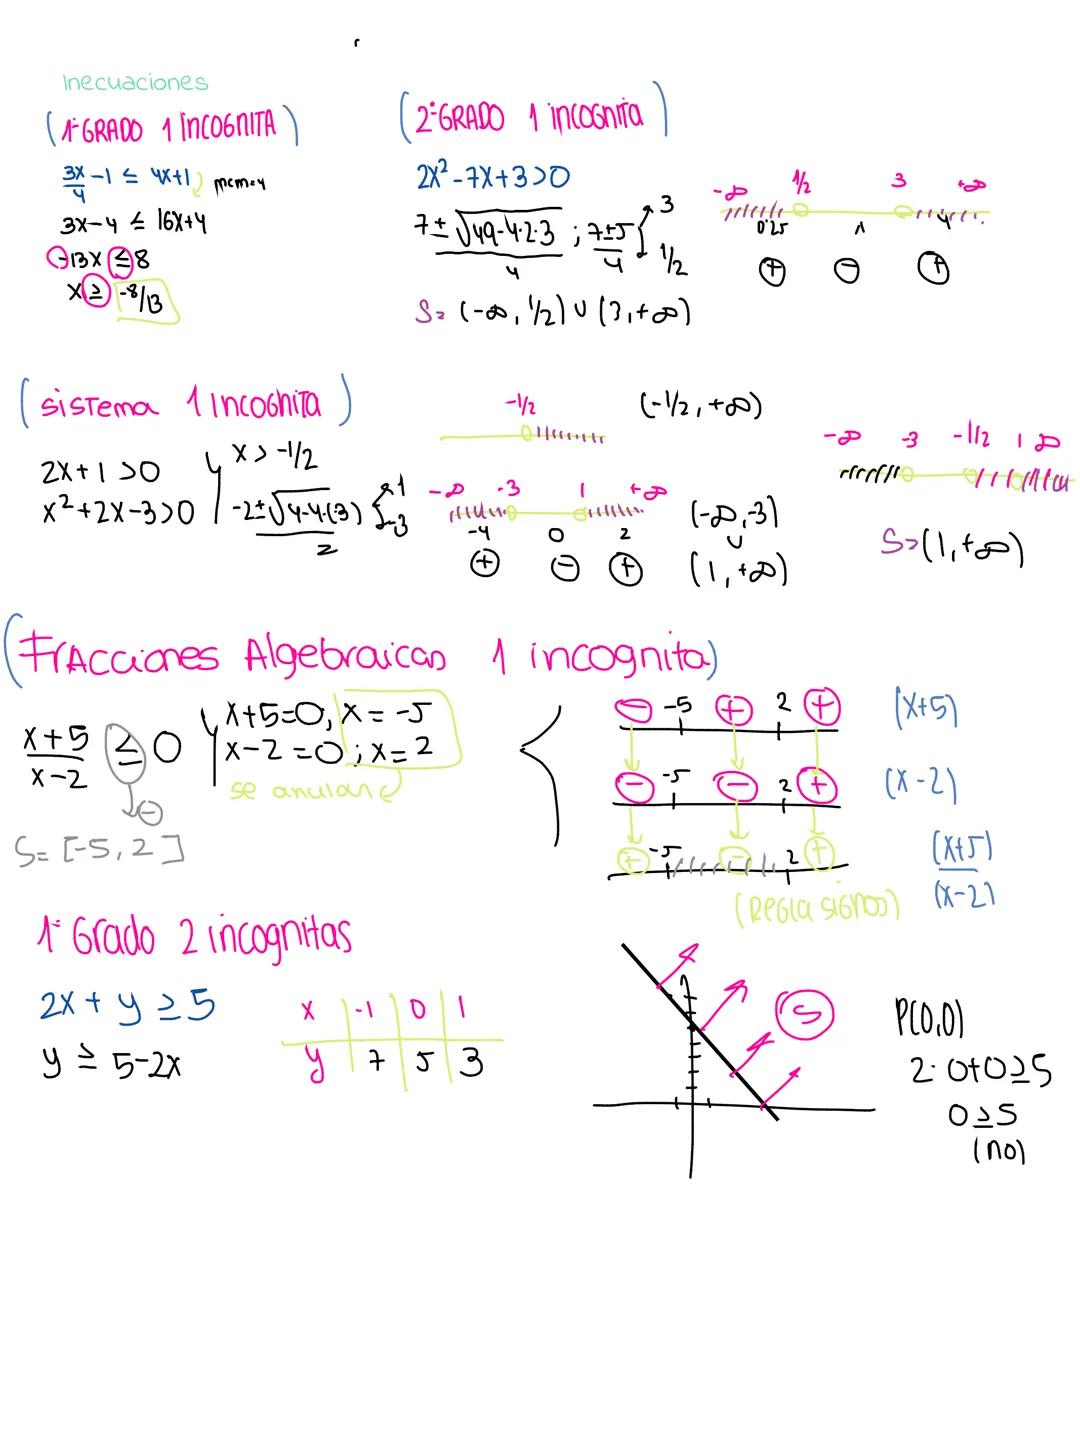 Inecuaciones
(1º GRADO 1 INCOGNITA)
3x/4 -1 ≤ 4x+1 mcm=4
3x-4 ≤ 16x+4
-13x ≤ 8
x ≥ -8/13
(2º GRADO 1 incognita)
2x²-7x+3>0
7±√49-4·2·3 / 4 ; 7±5 / 4 3 1/2
S= (-∞, 1/2) ∪ (3, +∞)
-∞ 1/2 3 +∞
0'25 1 4
+ - +
(sistema 1 incognita)
2x+1>0
x²+2x-3>0
x > -1/2
-2±√4-4·(-3) / 2 1 -3
-1/2 (-1/2, +∞)
-∞ -3 1 +∞
-4 0 2
+ - +
(-∞, -3)
∪
(1, +∞)
-∞ -3 -1/2 1 ∞
S=(1, +∞)
(Fracciones Algebraicas 1 incognita)
x+5 / x-2 ≤ 0
-
S= [-5, 2]
x+5=0, x=-5
x-2=0; x=2
se anulan
- -5 + 2 + (x+5)
- -5 - 2 + (x-2)
+ -5 - 2 + (x+5) / (x-2)
(Regla signos)
1º Grado 2 incognitas
2x+y ≥ 5
y ≥ 5-2x
x -1 0 1
y 7 5 3
S
P(0,0)
2·0+0≥5
0≥5
(no)